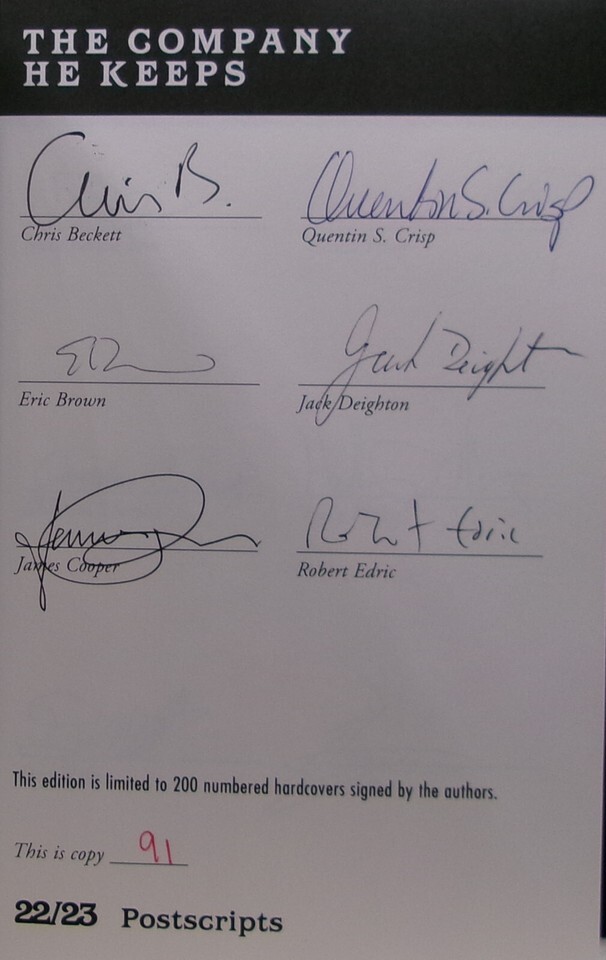 THE COMPANY
HE KEEPS
Chris B. Quentin S. Crisp
Chris Beckett Quentin S. Crisp
Jack Deighton
Eric Brown Jack Deighton
Robert Edric
James Cooper Robert Edric
This edition is limited to 200 numbered hardcovers signed by the authors.
This is copy 91
22/23 Postscripts